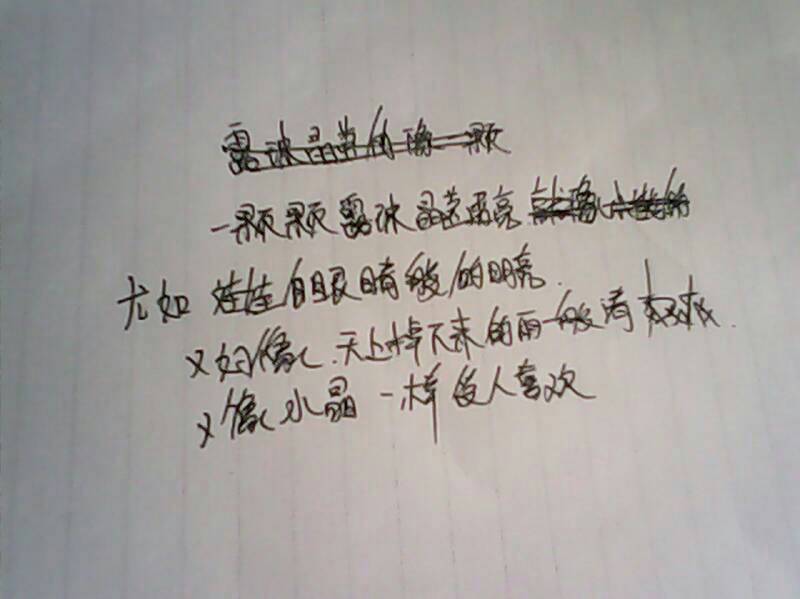 露珠晶莹的像一颗
一颗颗露珠晶莹透亮就像
尤如 娃娃的眼睛般的明亮.
又如像 天上掉下来的雨一般清
又像水晶一样受人喜欢